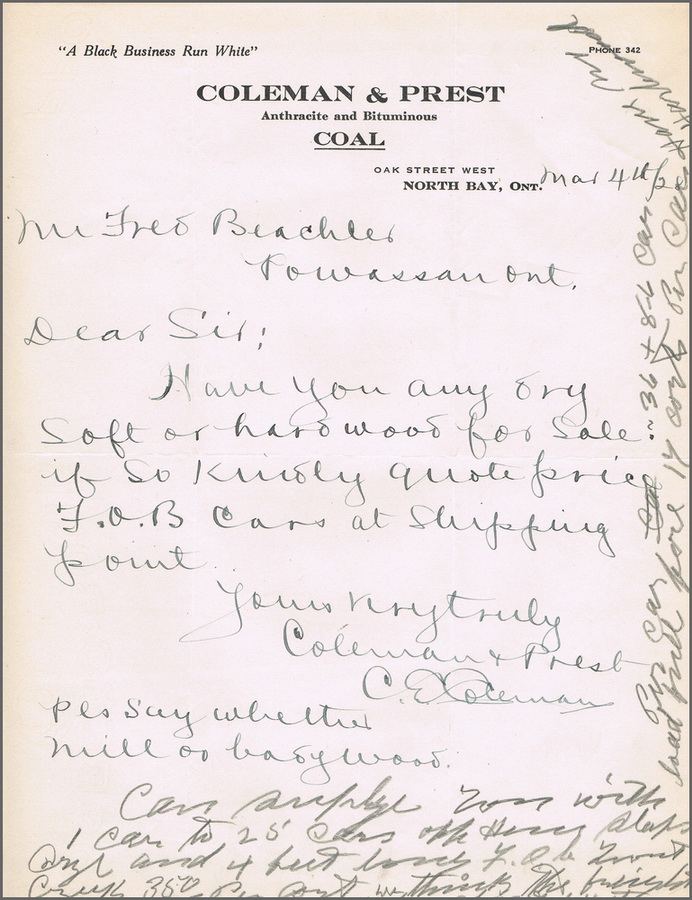 "A Black Business Run White"
PHONE 342
COLEMAN & PREST
Anthracite and Bituminous
COAL
OAK STREET WEST
NORTH BAY, ONT. Mar 4th
Mr Fred Beachler
Powassan Ont.
Dear Sir;
Have you any dry
Soft or hardwood for Sale?
if So Kindly quote price
F.O.B Cars at Shipping
point
Yours Very truly
Coleman & Prest
C.E. Coleman
Pls Say whether
mill or bodywood.
Can supply you with
1 car to 25 cars of
and 4 feet long F.O.b Trout
Creek 350 Per think the
Per Car 36 + 8-6 Car
load mill 17 Per Car